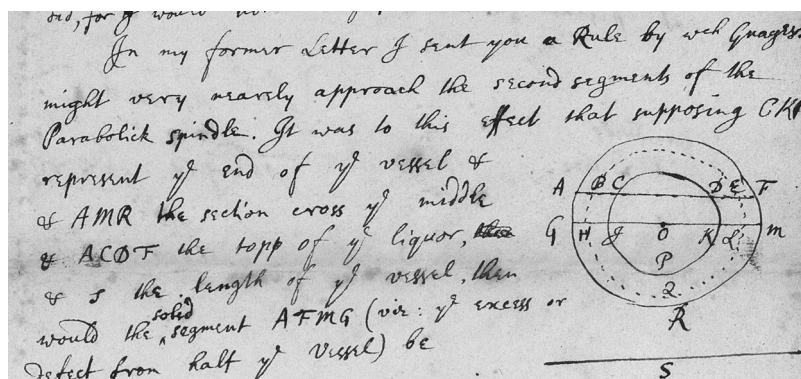 did, for I would
In my former Letter I sent you a Rule by wch Guagers
might very nearly approach the second segments of the
Parabolick spindle. It was to this effect that supposing CKP
represent ye end of ye vessel &
& AMR the section cross ye middle
& ACDF the topp of ye liquor,
& S the length of ye vessel, then
would the solid segment AFMG (viz: ye excess or
defect from half ye vessel) be
A B C D E F
G H J O K L M
P
Q
R
S